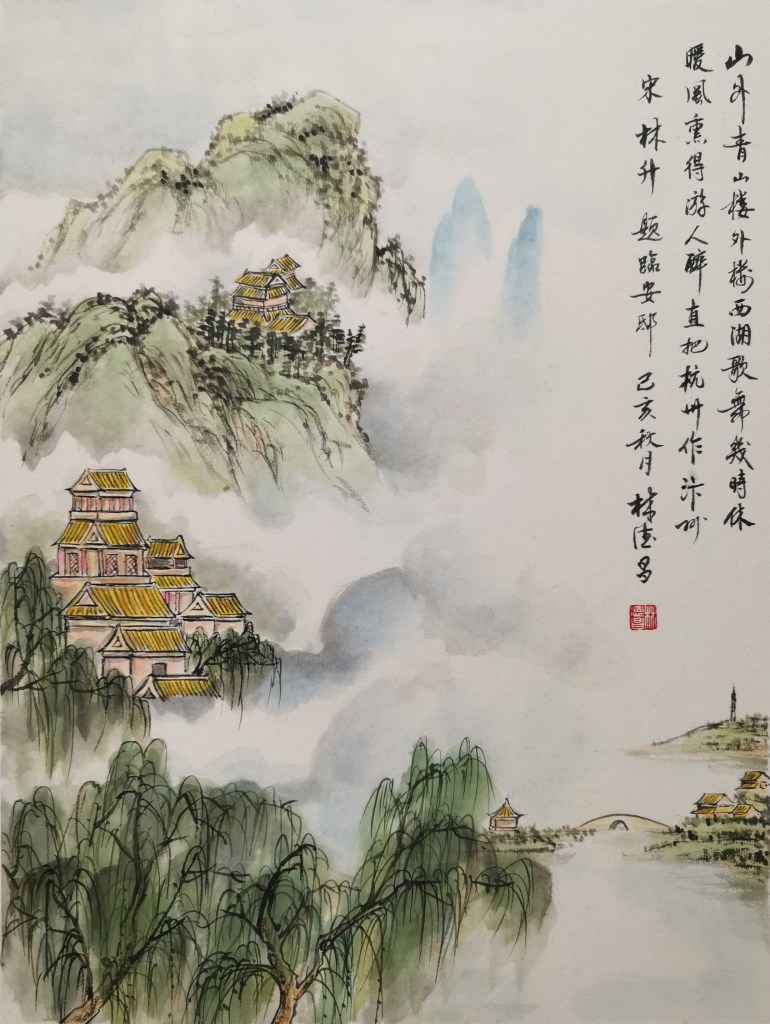 山外青山楼外楼西湖歌舞幾時休
暖風熏得游人醉直把杭州作汴州
宋林升題臨安邸己亥秋月林德昌